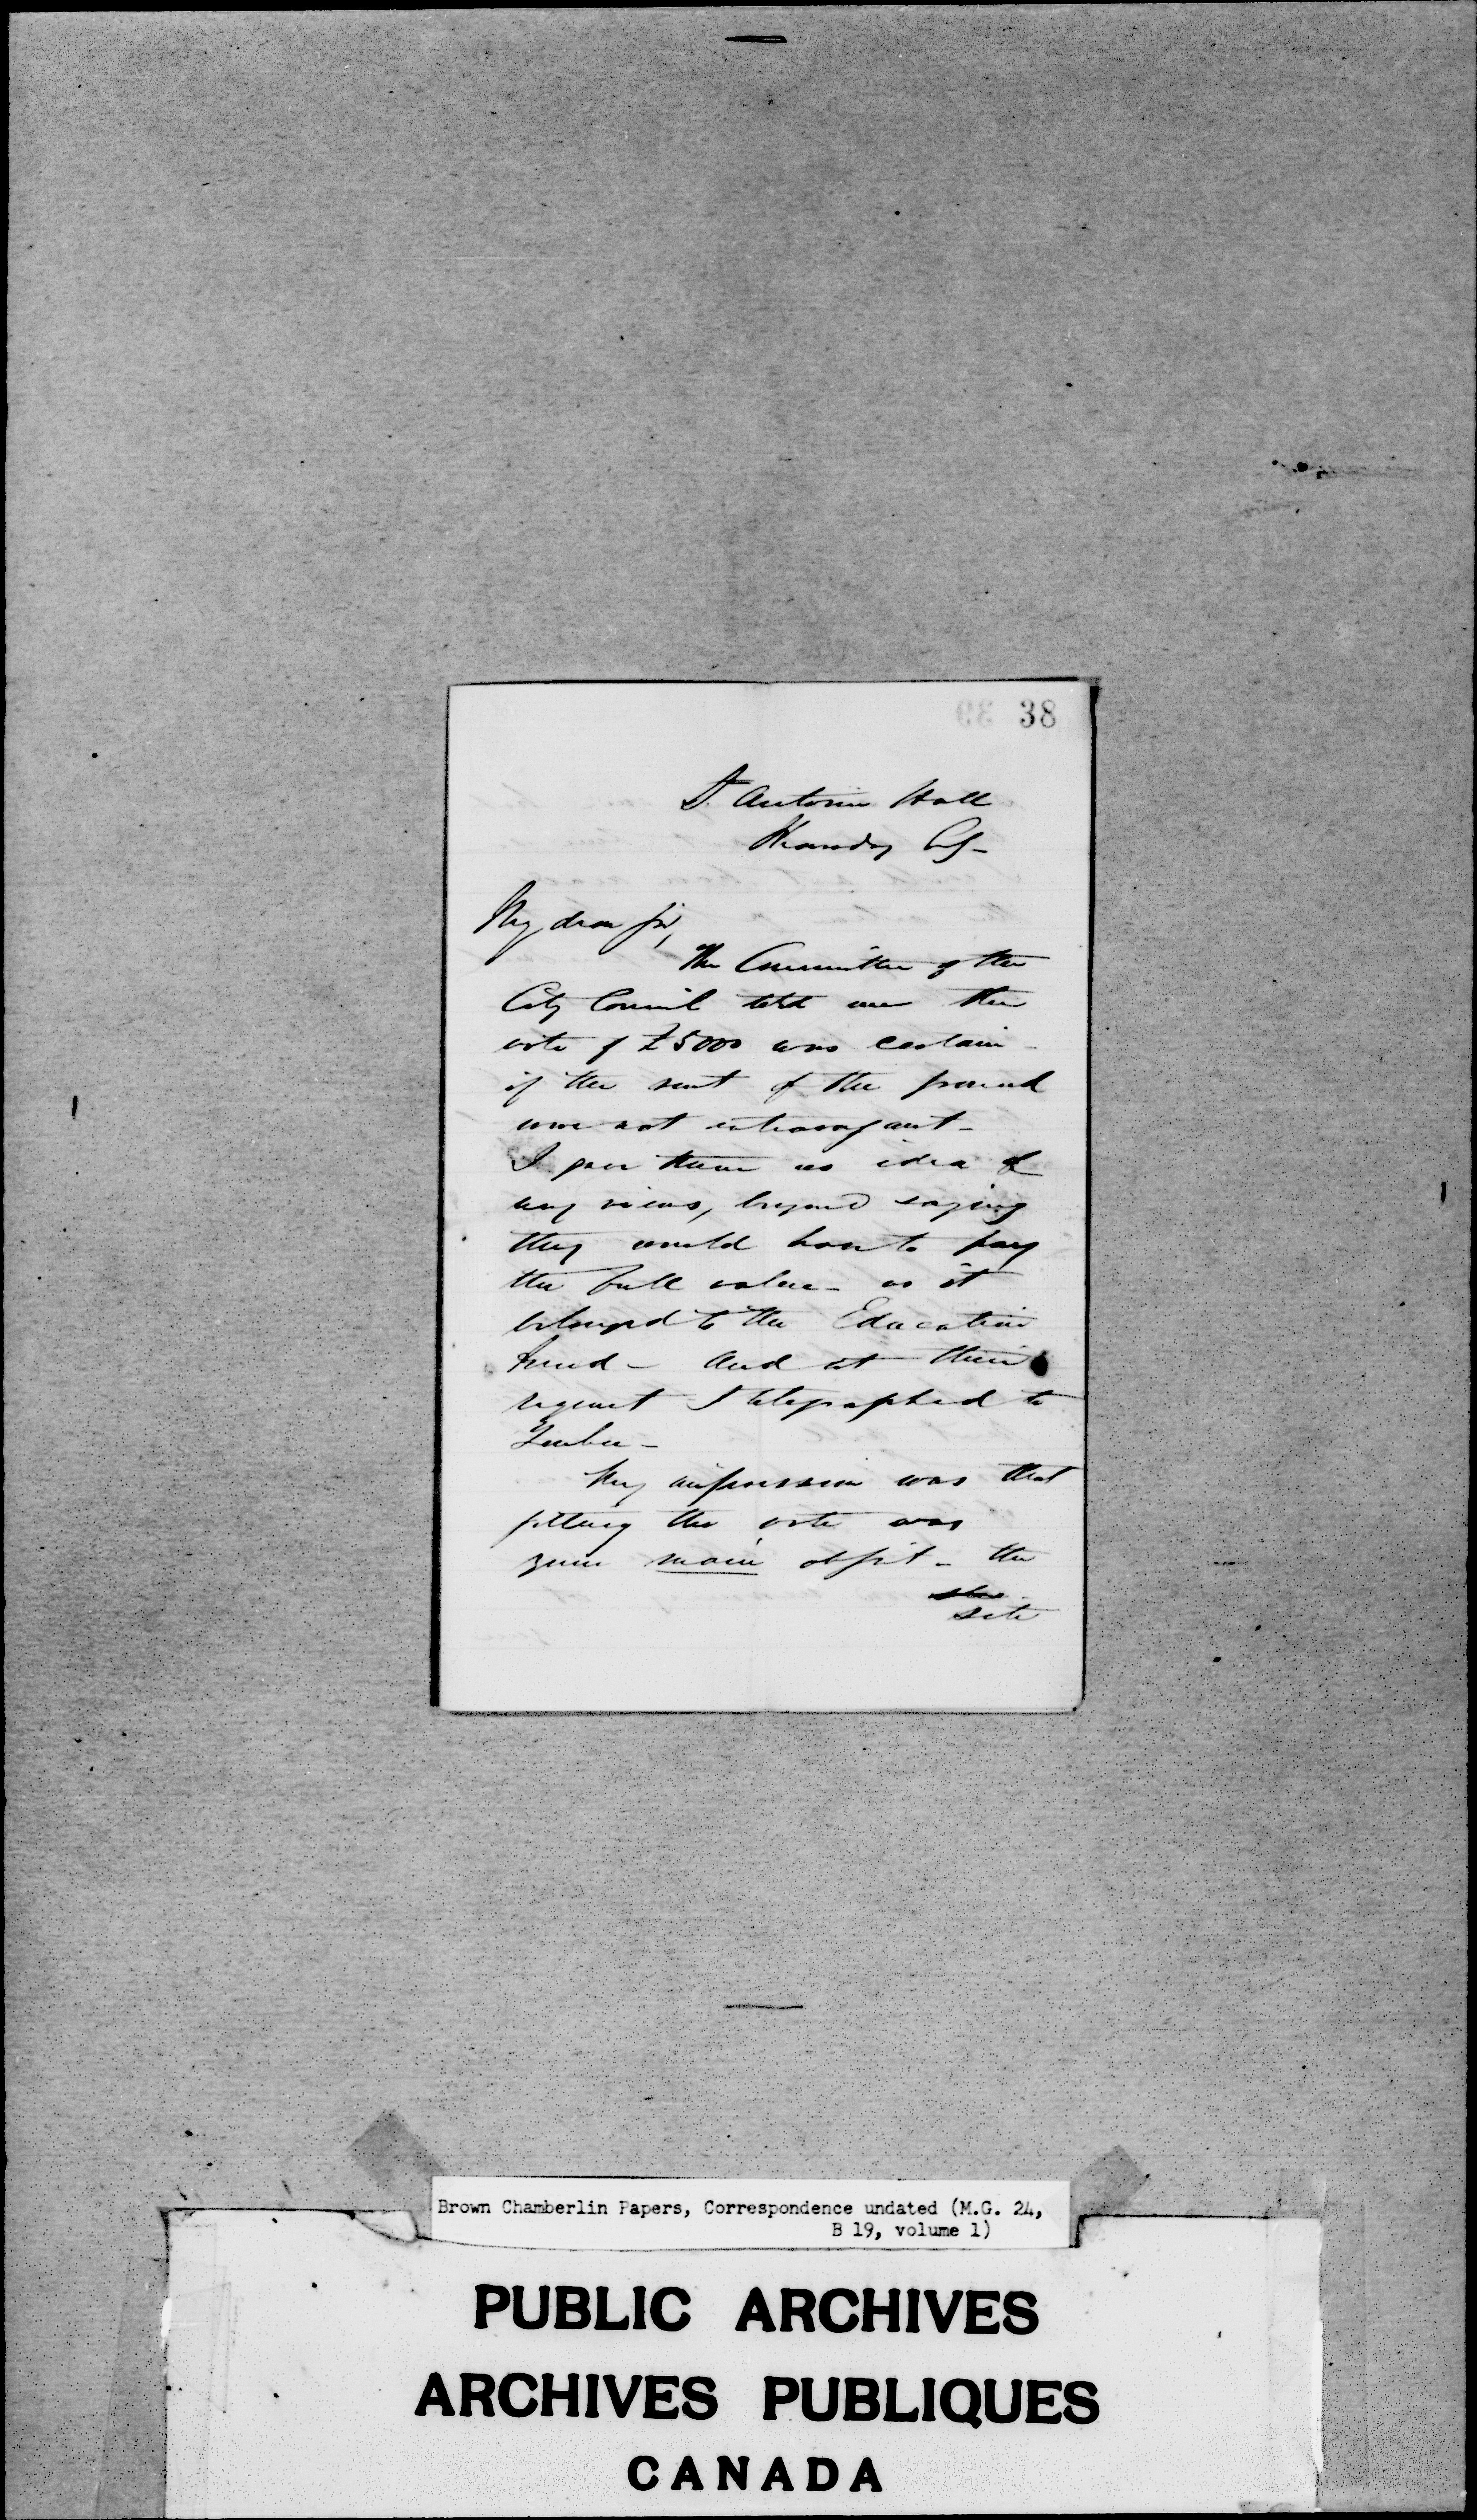 38
St. Antoine Hall
Thursday
My dear Sir,
The Committee of the
City Council told me the
vote of £5000 was certain
if the rent of the ground
were not extravagant -
I gave them no idea of
my views, beyond saying
they would have to pay
the full value - as it
belonged to the Education
Fund - And at their
request I telegraphed to
Quebec -
My impression was that
getting the vote was
your main object - the
site
Brown Chamberlin Papers, Correspondence undated (M.G. 24,
B 19, volume 1)
PUBLIC ARCHIVES
ARCHIVES PUBLIQUES
CANADA